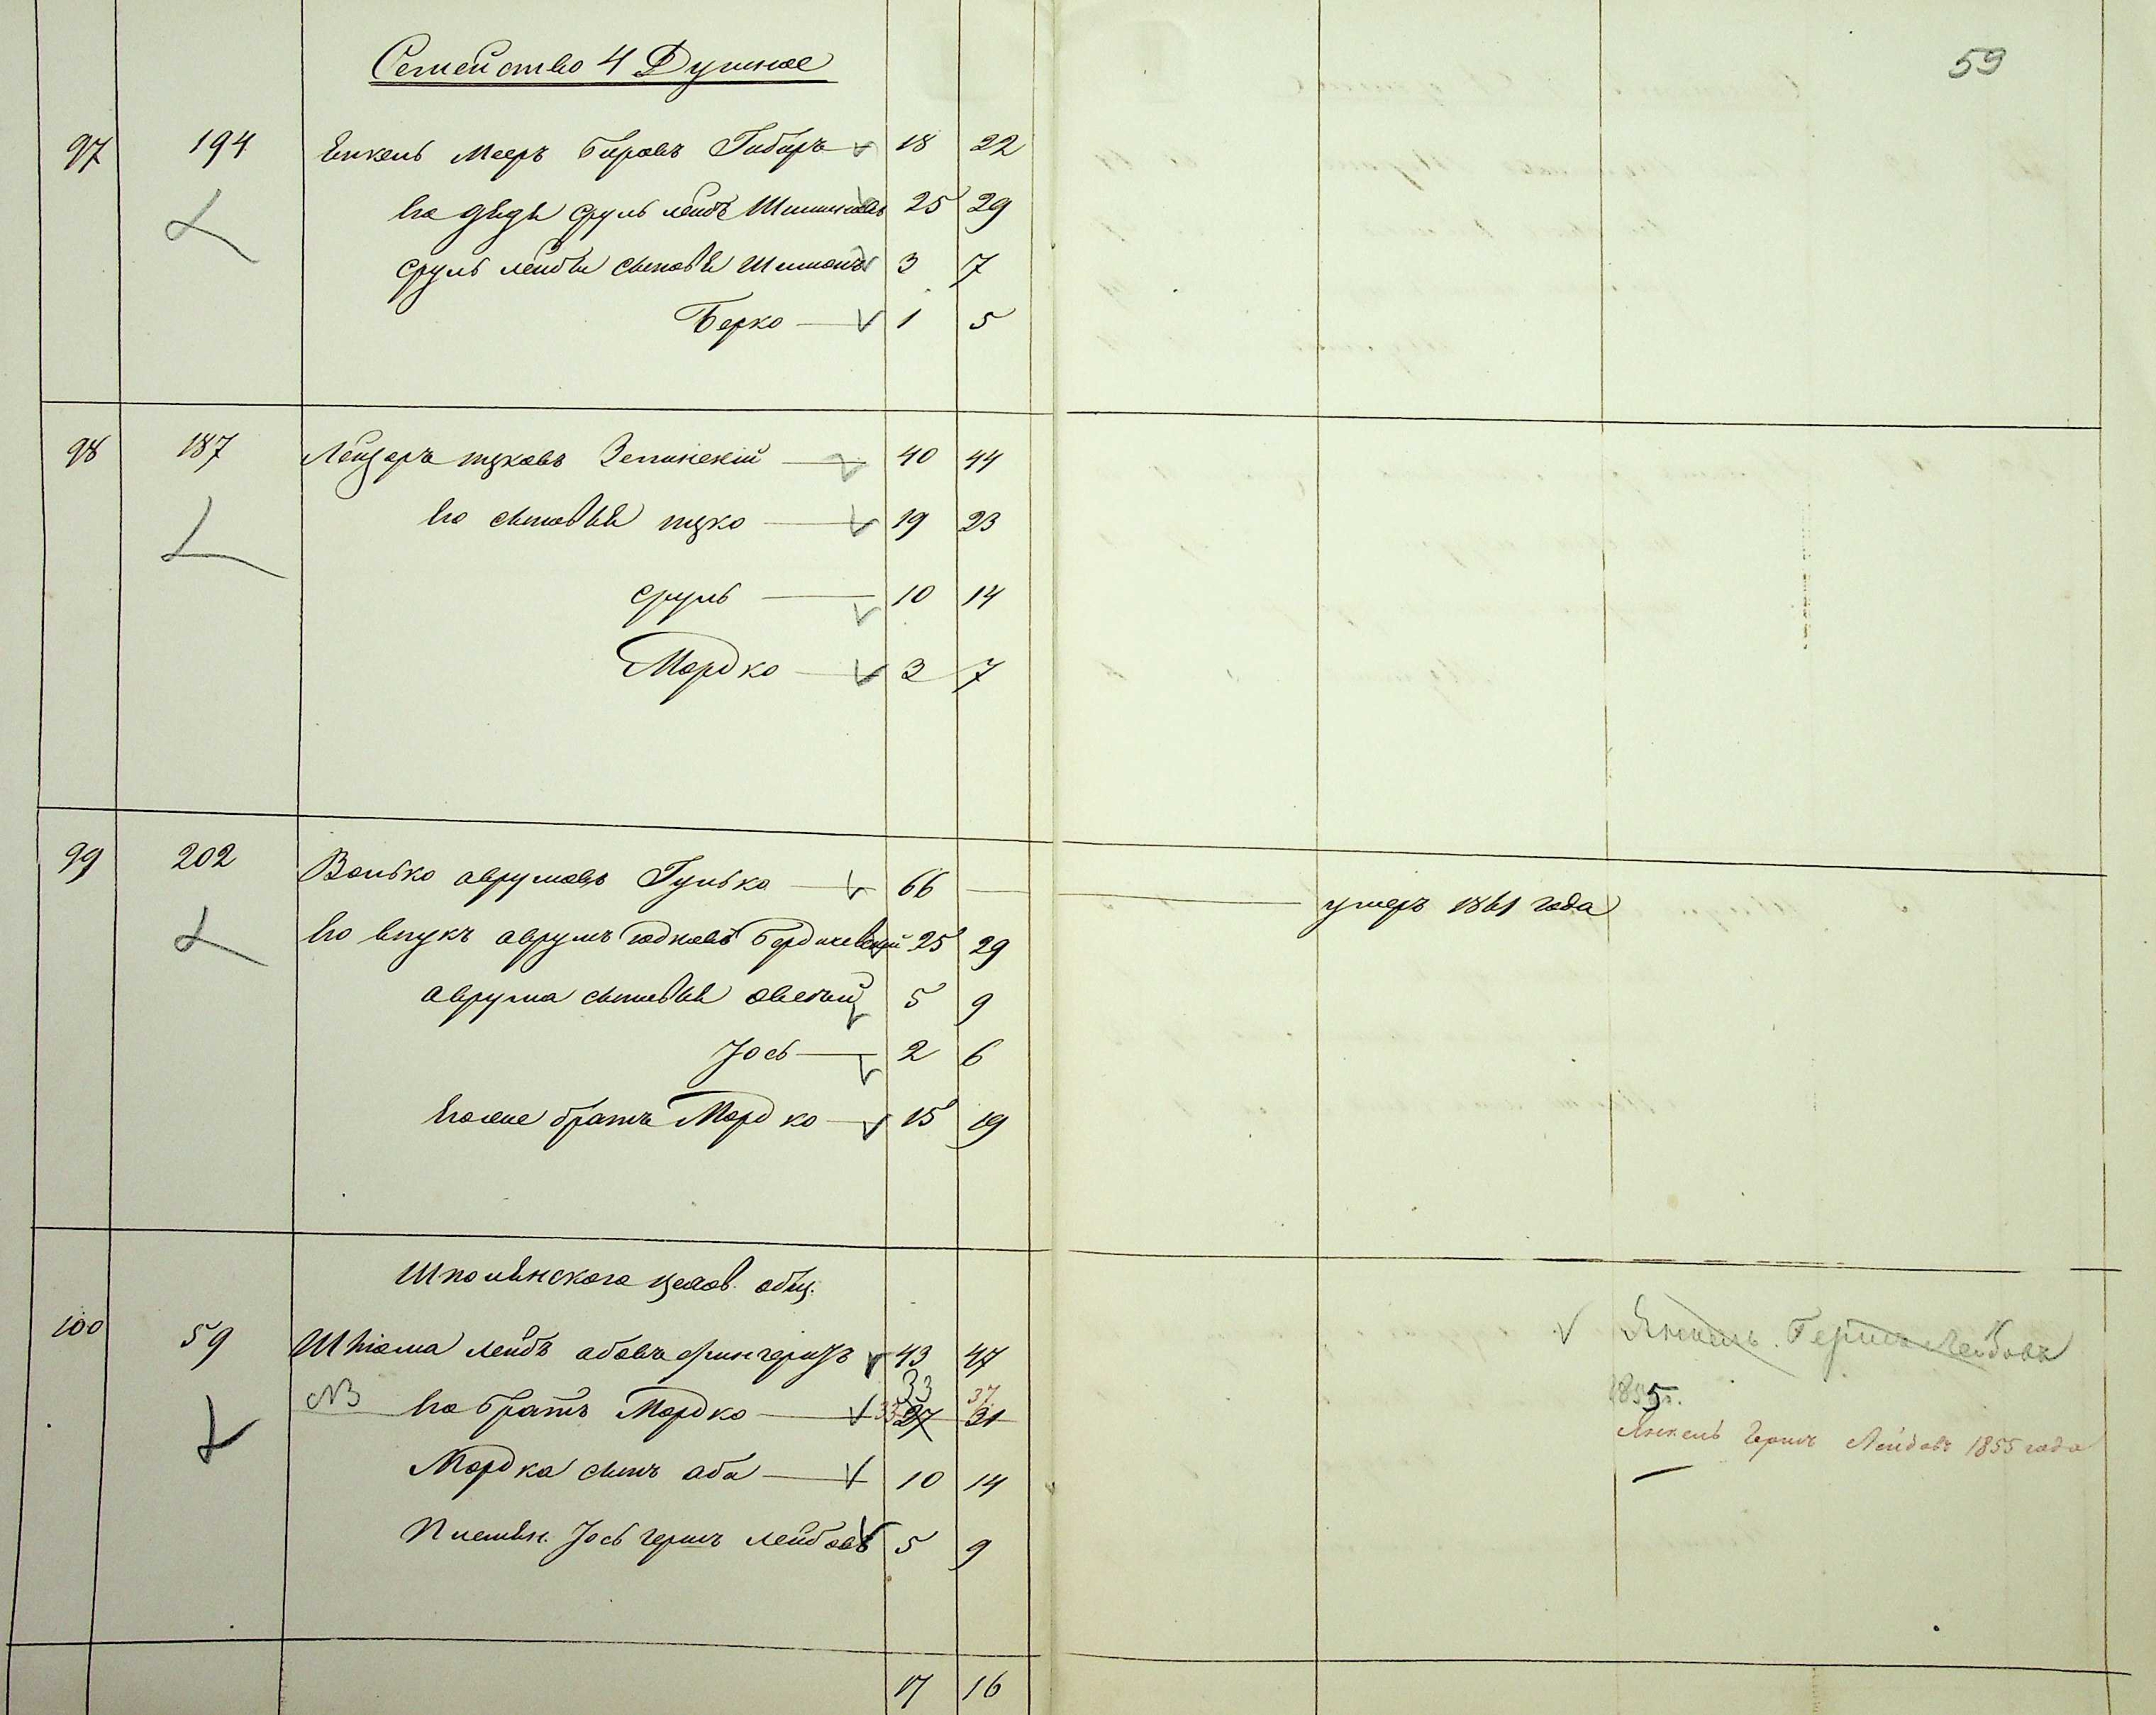 59
Семейство 4 Душное
97 194 Енкель Мееръ Беровъ Гиберъ 18 22
Его дядя Сруль Лейбъ Шимоновъ 25 29
Сруль Лейбы сыновья Шимонъ 3 7
Берко 1 5
98 187 Лейзеръ Ицковъ Зелинскій 40 44
Его сыновья Ицко 19 23
Сруль 10 14
Мордко 3 7
99 202 Волько Аврумовъ Гулько 66 — умеръ 1861 года
Его внукъ Аврумъ Юдковъ Бердичевскій 25 29
Аврума сыновья Овсей 5 9
Іось 2 6
Его же братъ Мордко 15 19
Шполянского еврей. общ.
100 59 Шліома Лейбъ Абовъ Фингерутъ 43 47
NB Его братъ Мордко 33 27 37 31
Мордка сынъ Аба 10 14
Племян. Іось Гершъ Лейбовъ 5 9
Янкель Гершъ Лейбовъ
1855 г.
Янкель Гершъ Лейбовъ 1855 года
17 16